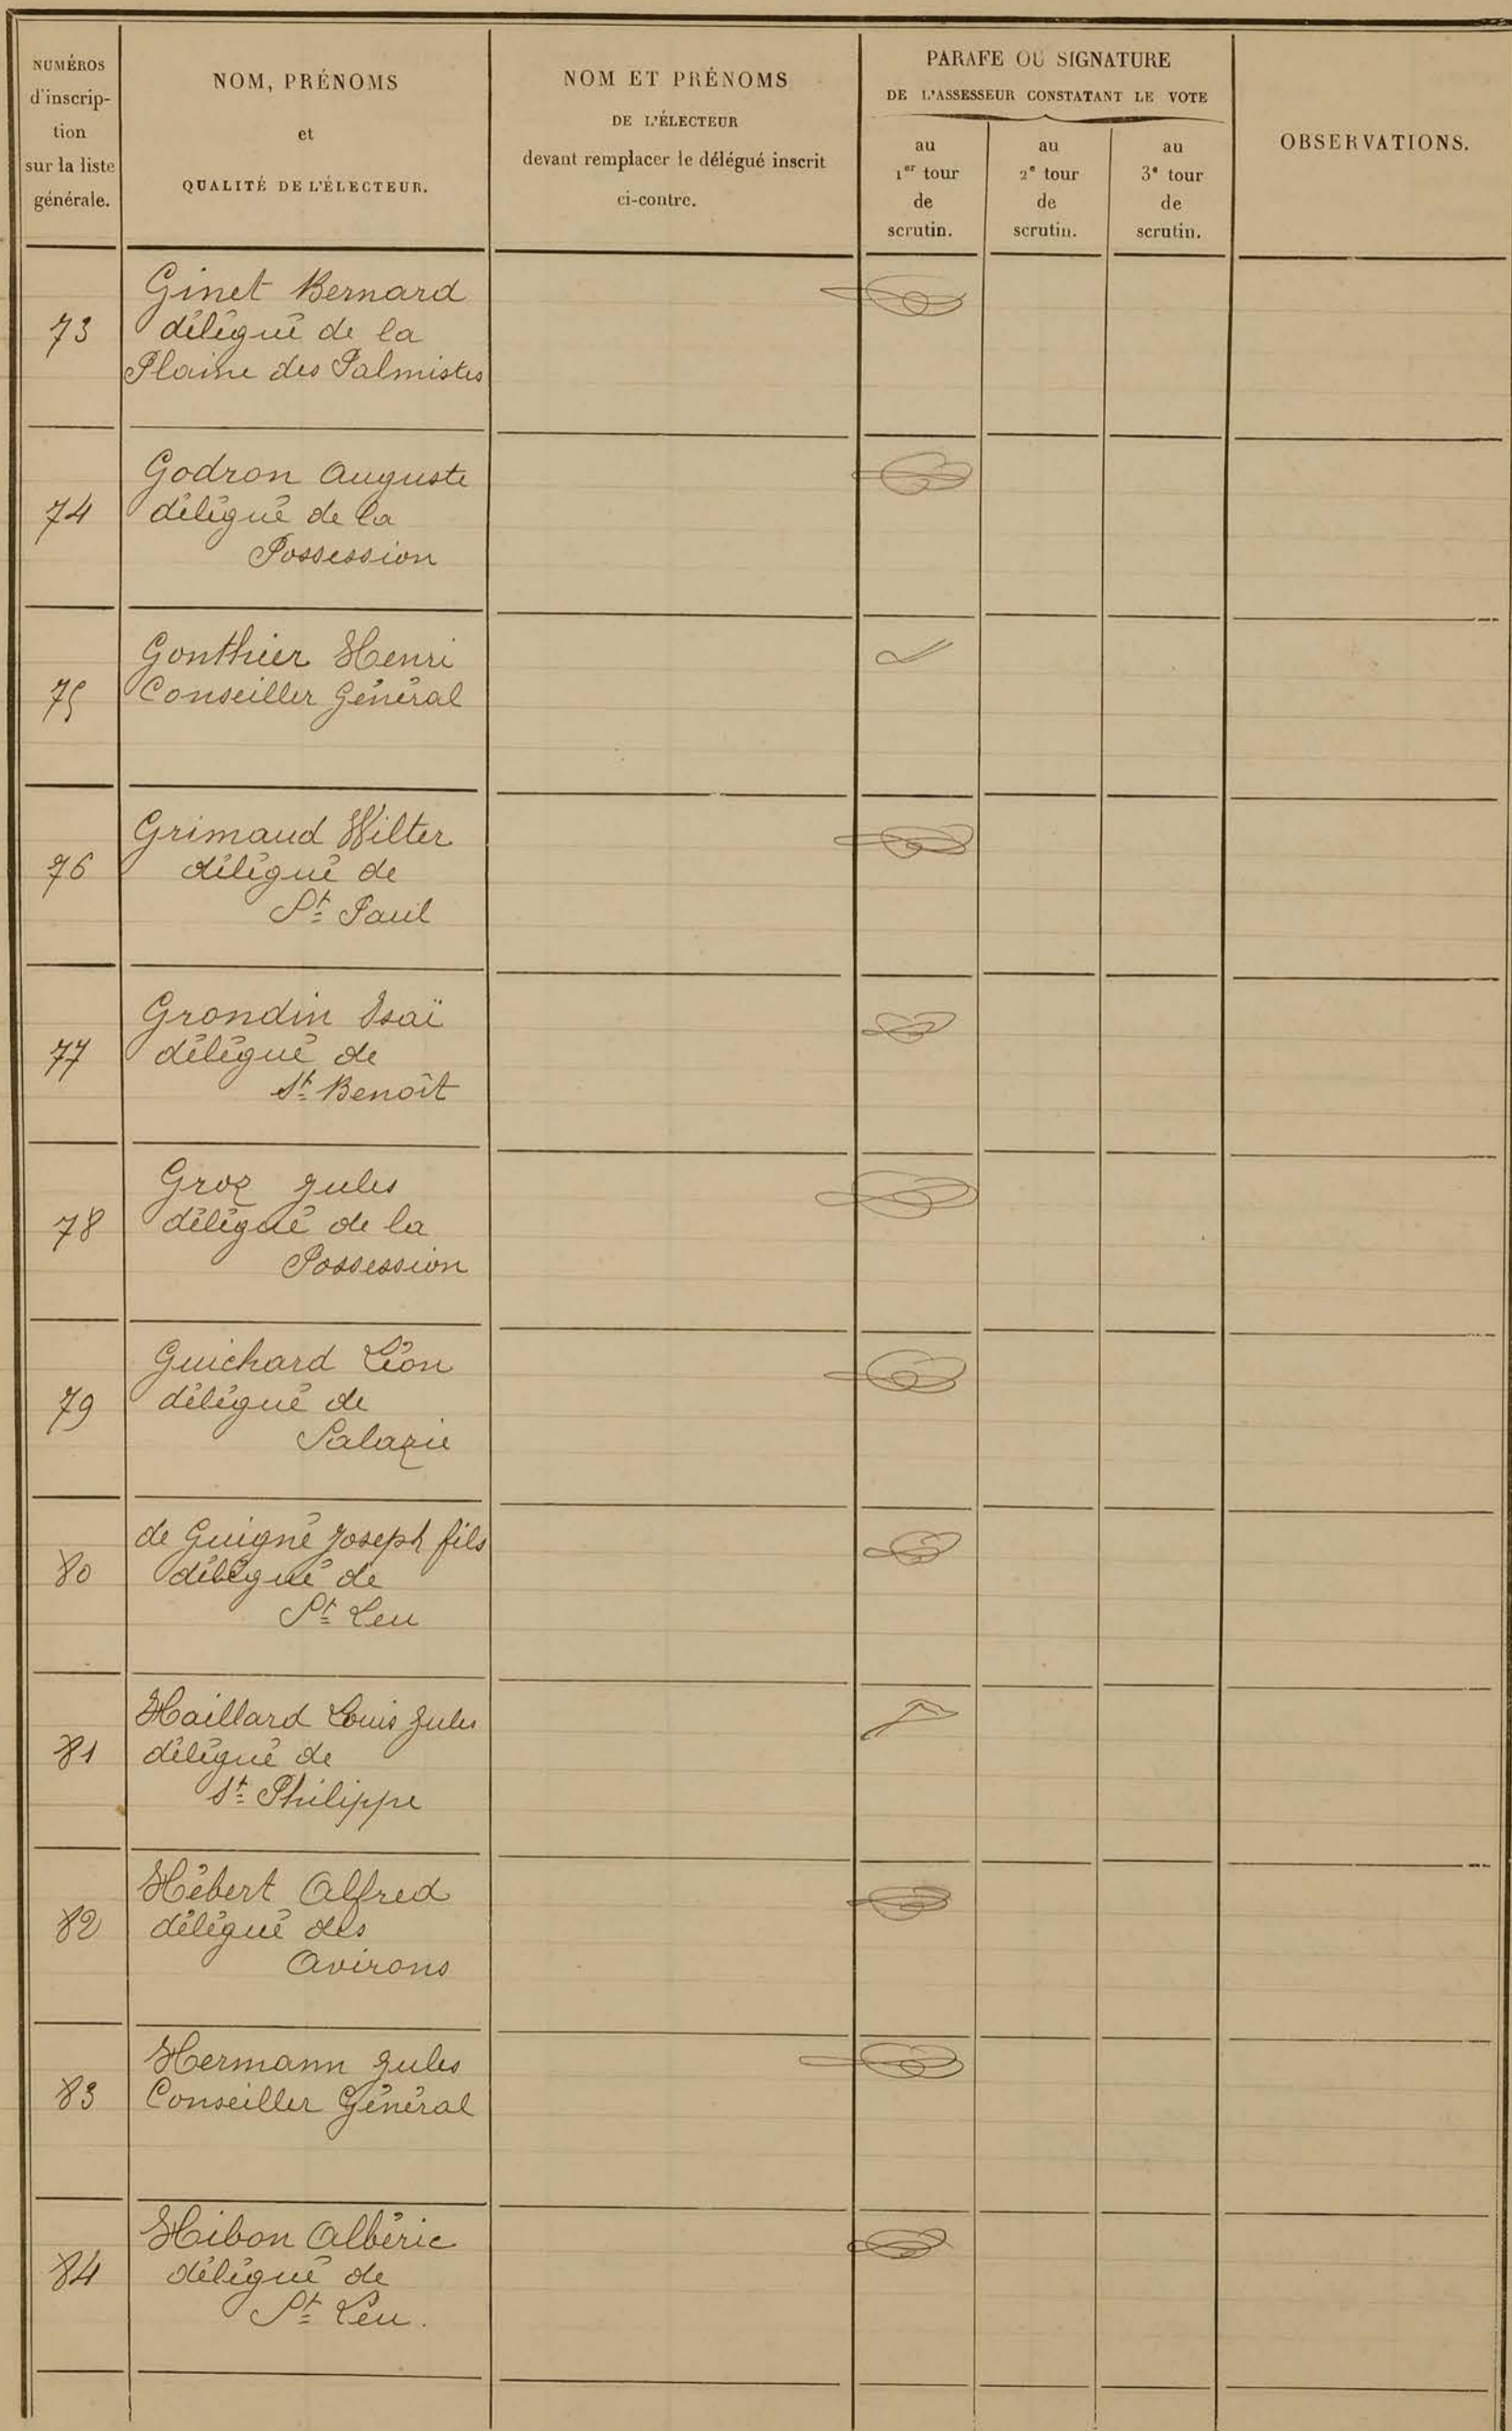 NUMÉROS
d'inscrip-
tion
sur la liste
générale.
NOM, PRÉNOMS
et
QUALITÉ DE L'ÉLECTEUR.
NOM ET PRÉNOMS
DE L'ÉLECTEUR
devant remplacer le délégué inscrit
ci-contre.
PARAFE OU SIGNATURE
DE L'ASSESSEUR CONSTATANT LE VOTE
au
1er tour
de
scrutin.
au
2e tour
de
scrutin.
au
3e tour
de
scrutin.
OBSERVATIONS.
73
Ginet Bernard
délégué de la
Plaine des Palmistes
74
Godron Auguste
délégué de la
Possession
75
Gonthier Henri
Conseiller Général
76
Grimaud Wilter
délégué de
St Paul
77
Grondin Isaï
délégué de
St Benoît
78
Groz Jules
délégué de la
Possession
79
Guichard Léon
délégué de
Salazie
80
de Guigné Joseph fils
délégué de
St Leu
81
Haillard Louis Jules
délégué de
St Philippe
82
Hébert Alfred
délégué des
Avirons
83
Hermann Jules
Conseiller Général
84
Hibon Albéric
délégué de
St Leu.